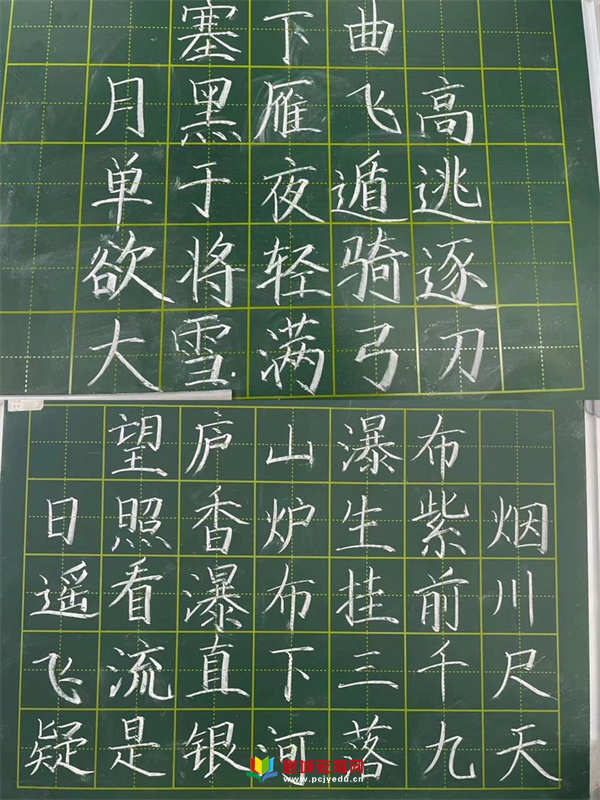 塞下曲
月黑雁飞高
单于夜遁逃
欲将轻骑逐
大雪满弓刀
望庐山瀑布
日照香炉生紫烟
遥看瀑布挂前川
飞流直下三千尺
疑是银河落九天
www.pcjyedu.com